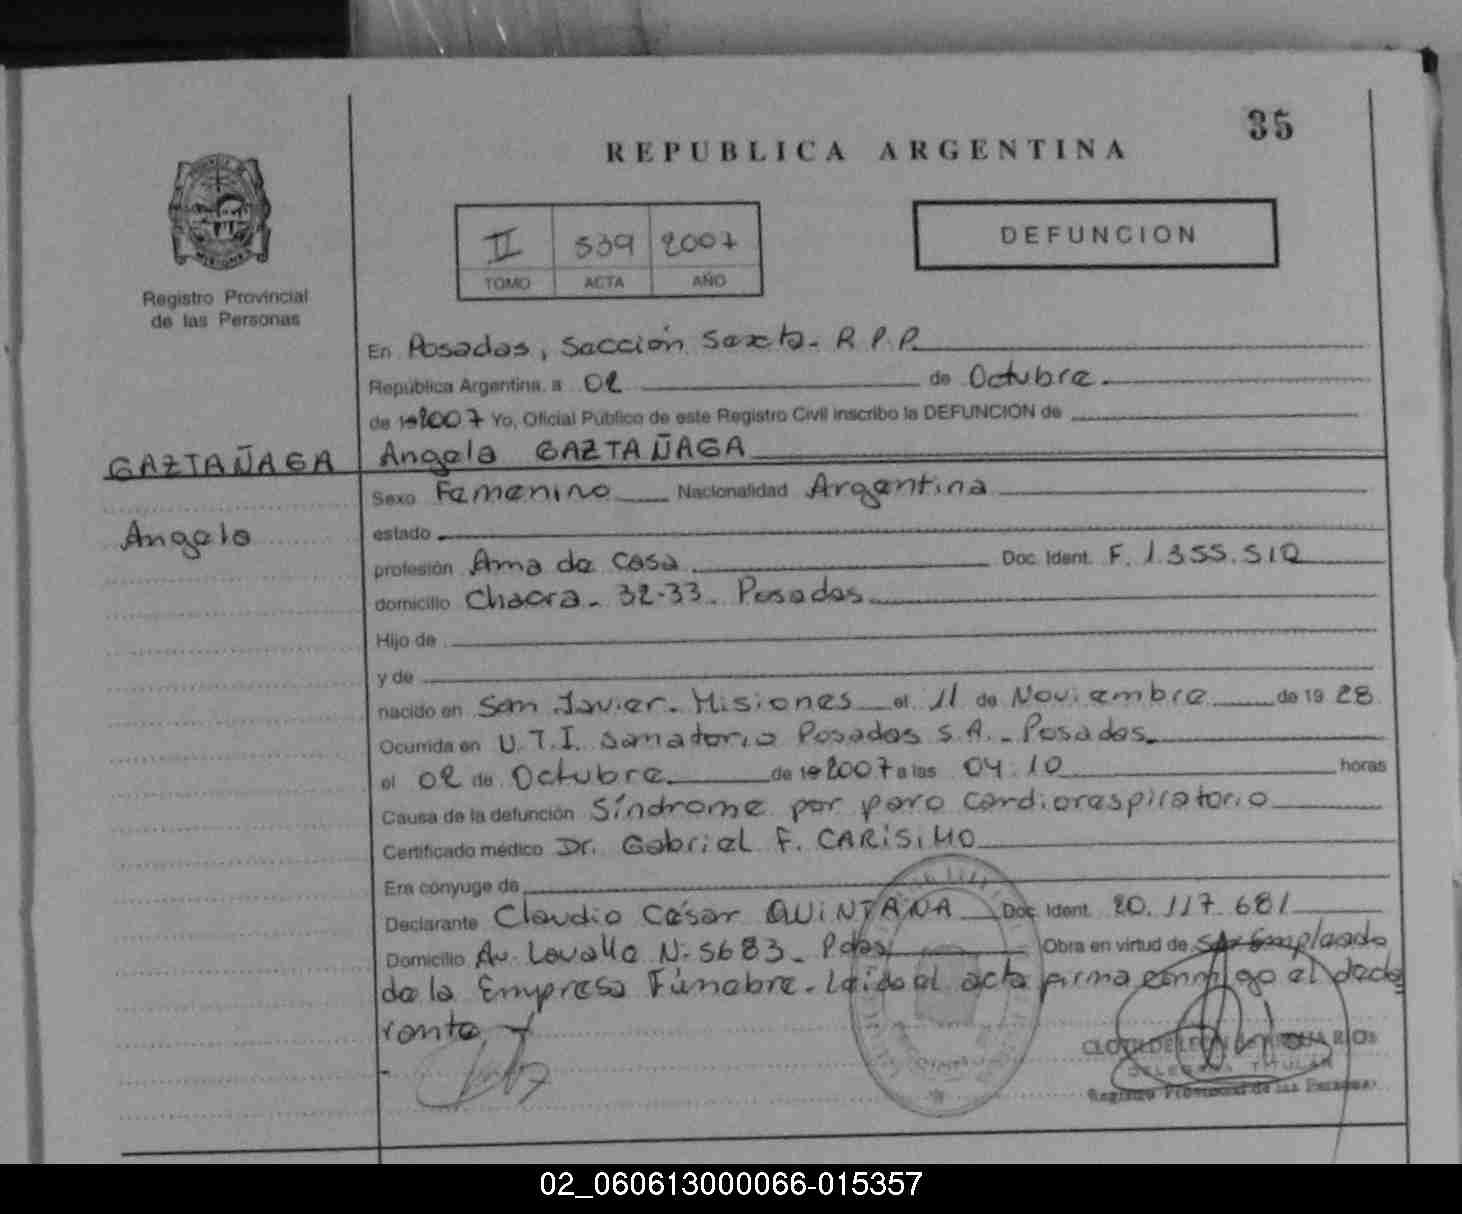 35
REPUBLICA ARGENTINA
II 539 2007
TOMO ACTA AÑO
DEFUNCION
Registro Provincial
de las Personas
En Posadas, Sección Sexta - R.P.P.
República Argentina, a 02 de Octubre
de 19 2007 Yo, Oficial Público de este Registro Civil inscribo la DEFUNCION de
GAZTAÑAGA Angela GAZTAÑAGA
Sexo Femenino Nacionalidad Argentina
Angela
estado
profesión Ama de casa Doc. Ident. F. 1.355.510
domicilio Chacra - 32-33 - Posadas
Hijo de
y de
nacido en San Javier - Misiones el 11 de Noviembre de 19 28
Ocurrida en U.T.I. Sanatorio Posadas S.A. - Posadas
el 02 de Octubre de 19 2007 a las 04:10 horas
Causa de la defunción Síndrome por paro cardiorespiratorio
Certificado médico Dr. Gabriel F. CARISIMO
Era cónyuge de
Declarante Claudio César QUINTANA Doc. Ident. 20.117.681
Domicilio Av. Lavalle N- 5683 - Pdas Obra en virtud de ser Empleado
de la Empresa Fúnebre - Leída el acta firma conmigo el decla
rante
DELEGADA TITULAR
Registro Provincial de las Personas
02_060613000066-015357